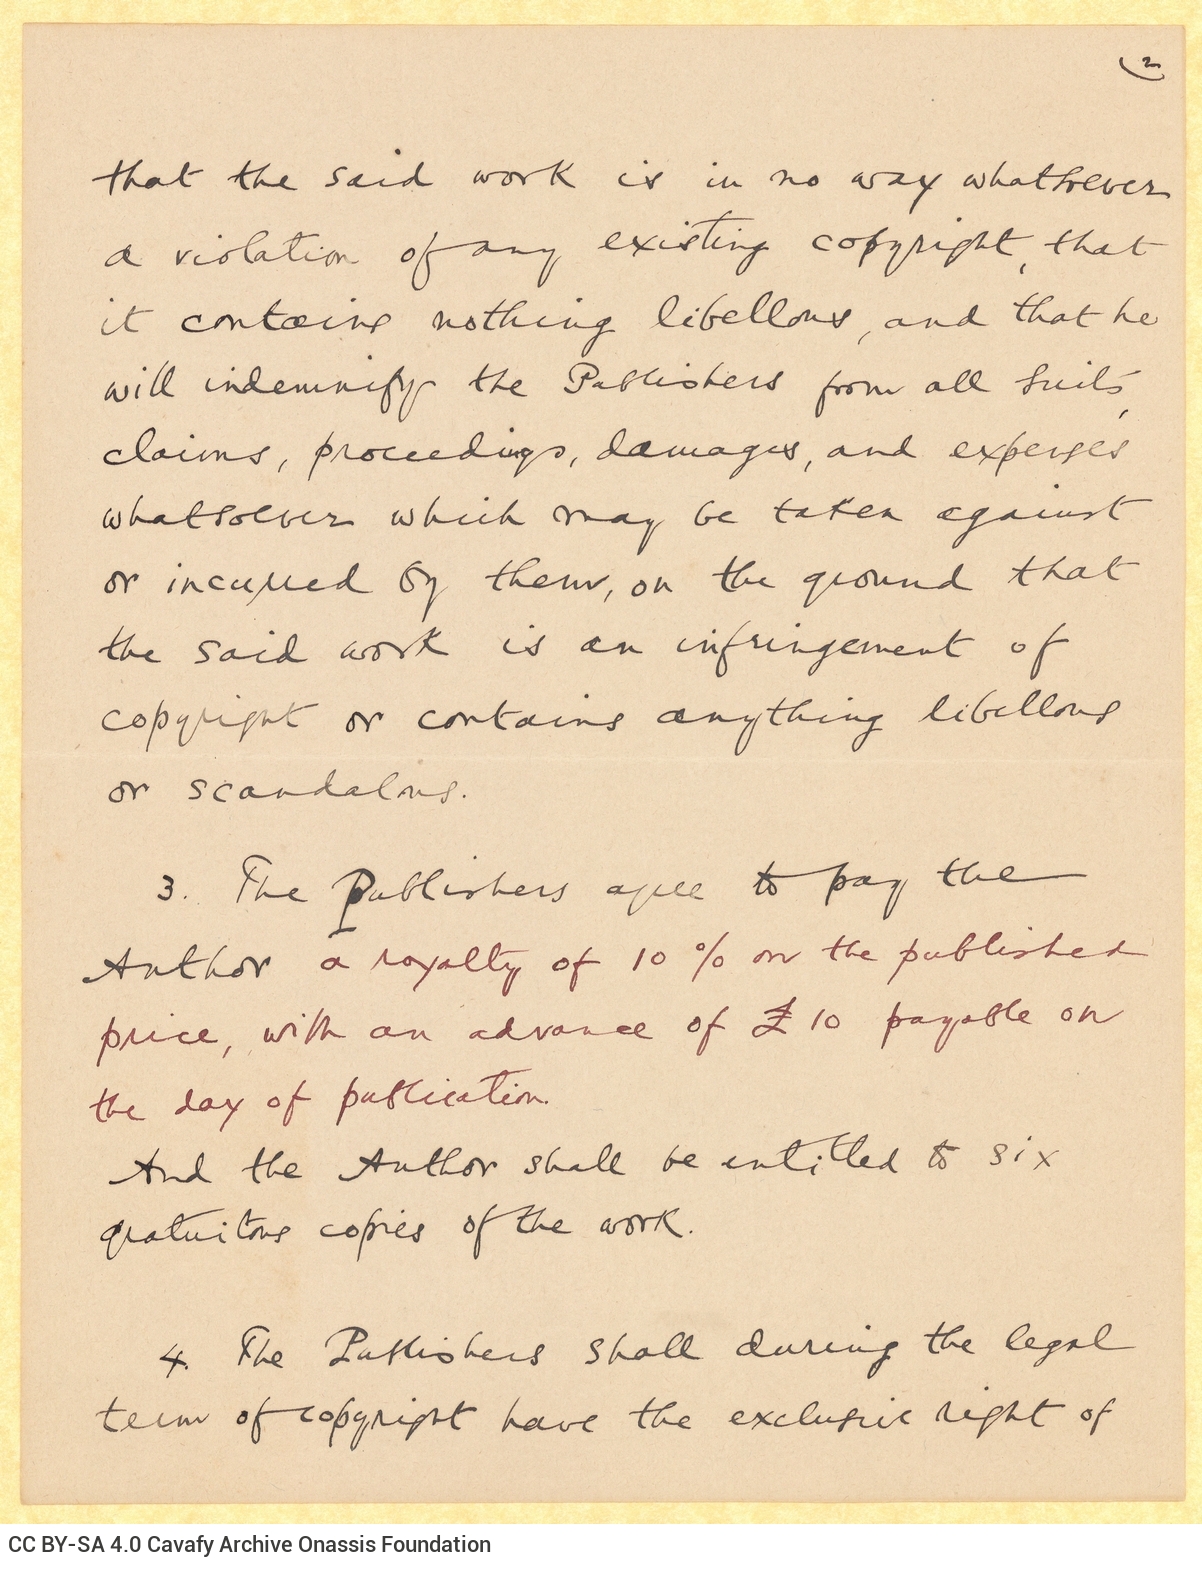 2
that the said work is in no way whatsoever
a violation of any existing copyright, that
it contains nothing libellous, and that he
will indemnify the Publishers from all suits,
claims, proceedings, damages, and expenses
whatsoever which may be taken against
or incurred by them, on the ground that
the said work is an infringement of
copyright or contains anything libellous
or scandalous.
3. The Publishers agree to pay the
Author a royalty of 10 % on the published
price, with an advance of £10 payable on
the day of publication.
And the Author shall be entitled to six
gratuitous copies of the work.
4. The Publishers shall during the legal
term of copyright have the exclusive right of
CC BY-SA 4.0 Cavafy Archive Onassis Foundation